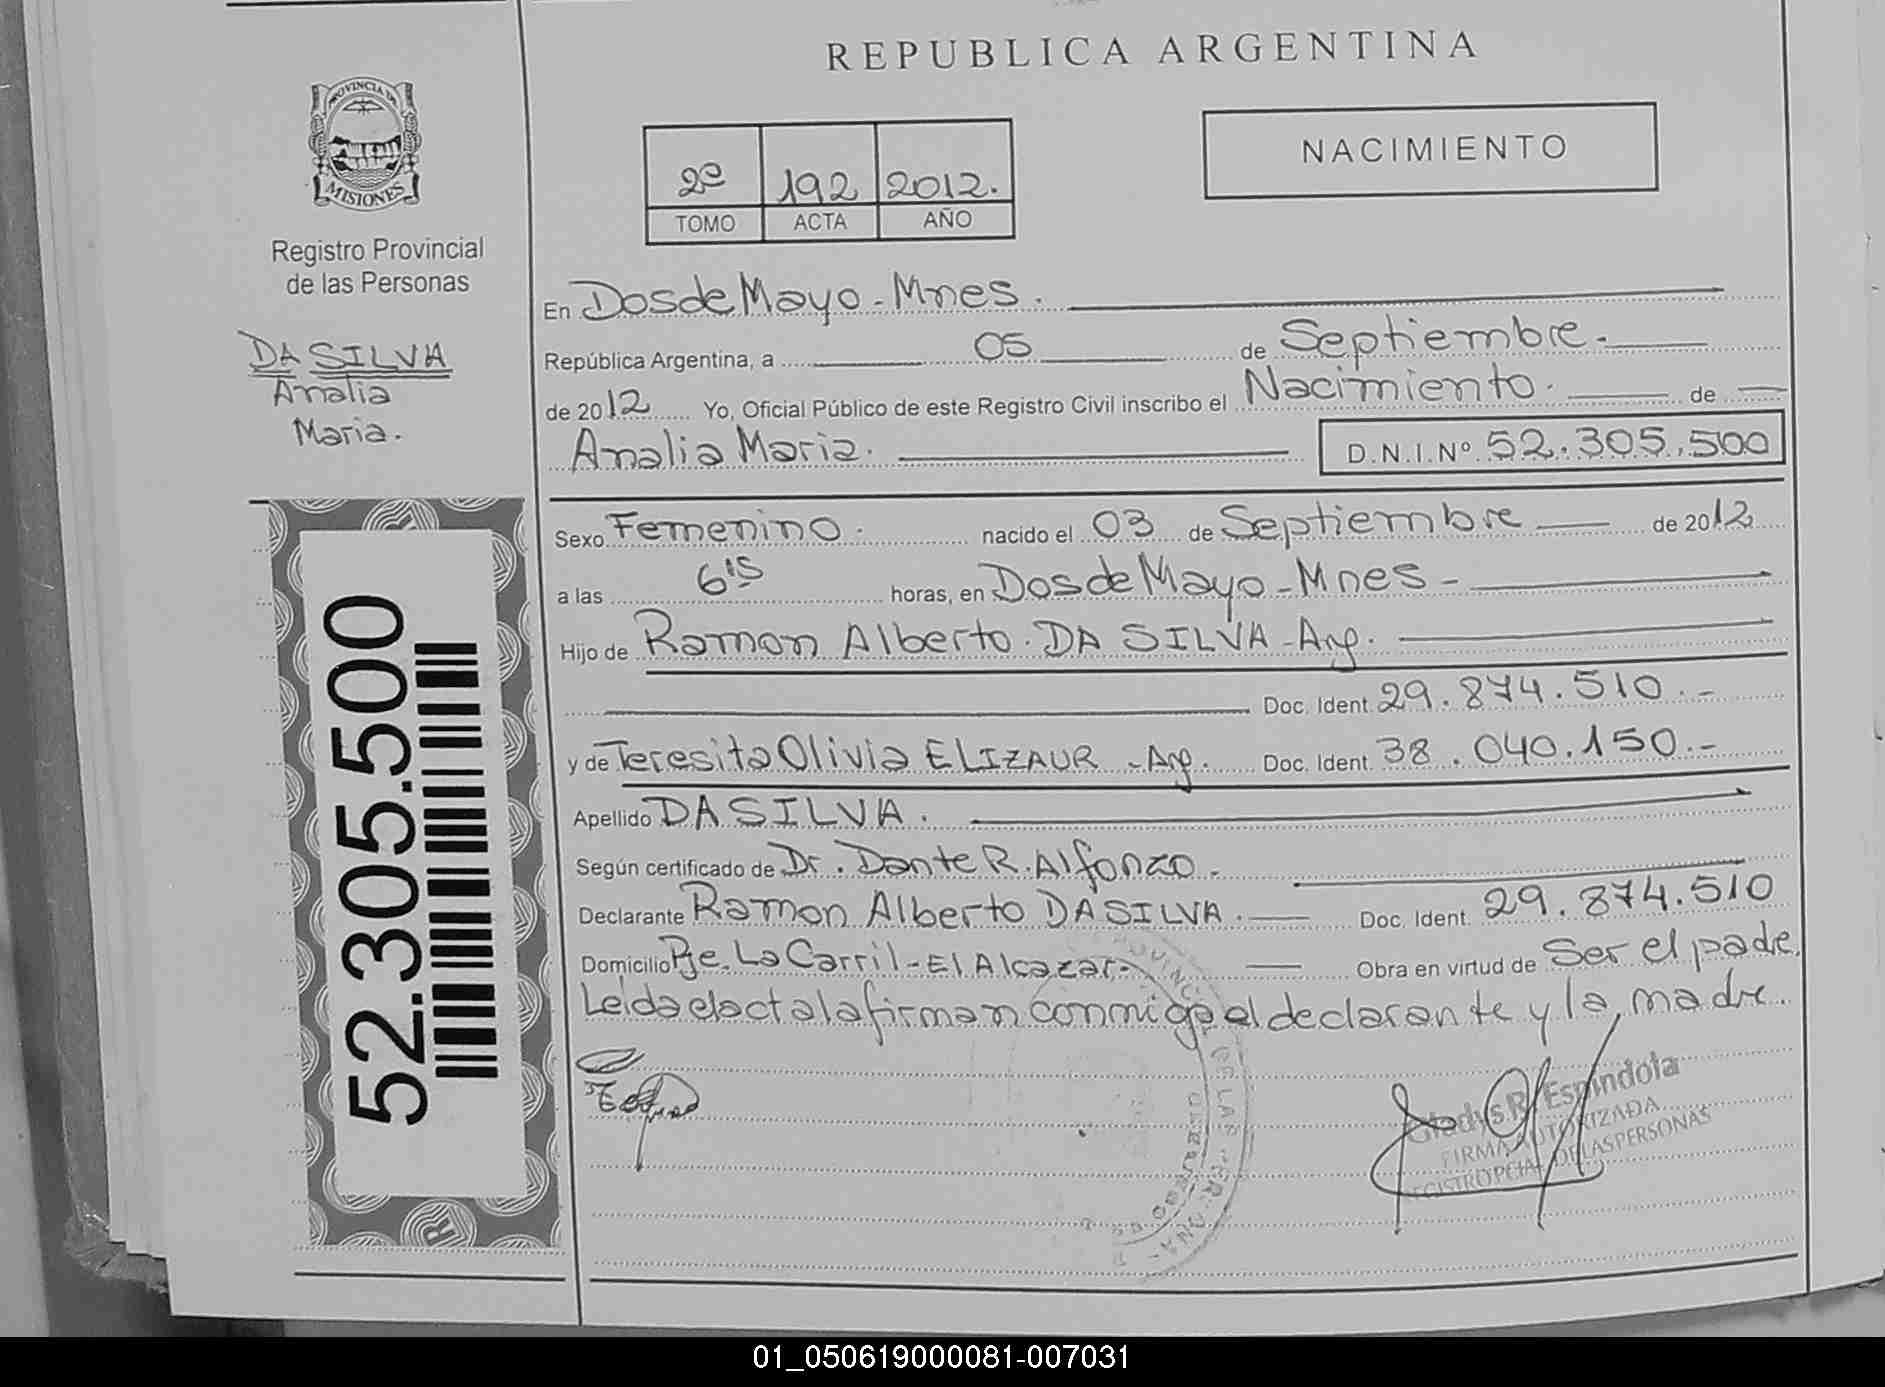 REPUBLICA ARGENTINA
PROVINCIA DE
MISIONES
Registro Provincial
de las Personas
DA SILVA
Analia
Maria.
52.305.500
2º 192 2012.
TOMO ACTA AÑO
NACIMIENTO
En Dos de Mayo - Mnes.
República Argentina, a 05 de Septiembre.
de 2012 Yo, Oficial Público de este Registro Civil inscribo el Nacimiento. de
Analia Maria. D.N.I.Nº 52.305.500
Sexo Femenino. nacido el 03 de Septiembre de 2012
a las 6 15 horas, en Dos de Mayo - Mnes -
Hijo de Ramon Alberto. DA SILVA - Arg.
Doc. Ident. 29.874.510.-
y de Teresita Olivia ELIZAUR - Arg. Doc. Ident. 38.040.150.-
Apellido DA SILVA.
Según certificado de Dr. Dante R. Alfonzo.
Declarante Ramon Alberto DA SILVA. Doc. Ident. 29.874.510
Domicilio Pje. La Carril - El Alcazar.- Obra en virtud de Ser el padre.
Leida el acta la firman conmigo el declarante y la madre.
Gladys R. Espindola
FIRMA AUTORIZADA
REGISTRO PCIAL. DE LAS PERSONAS
01_050619000081-007031